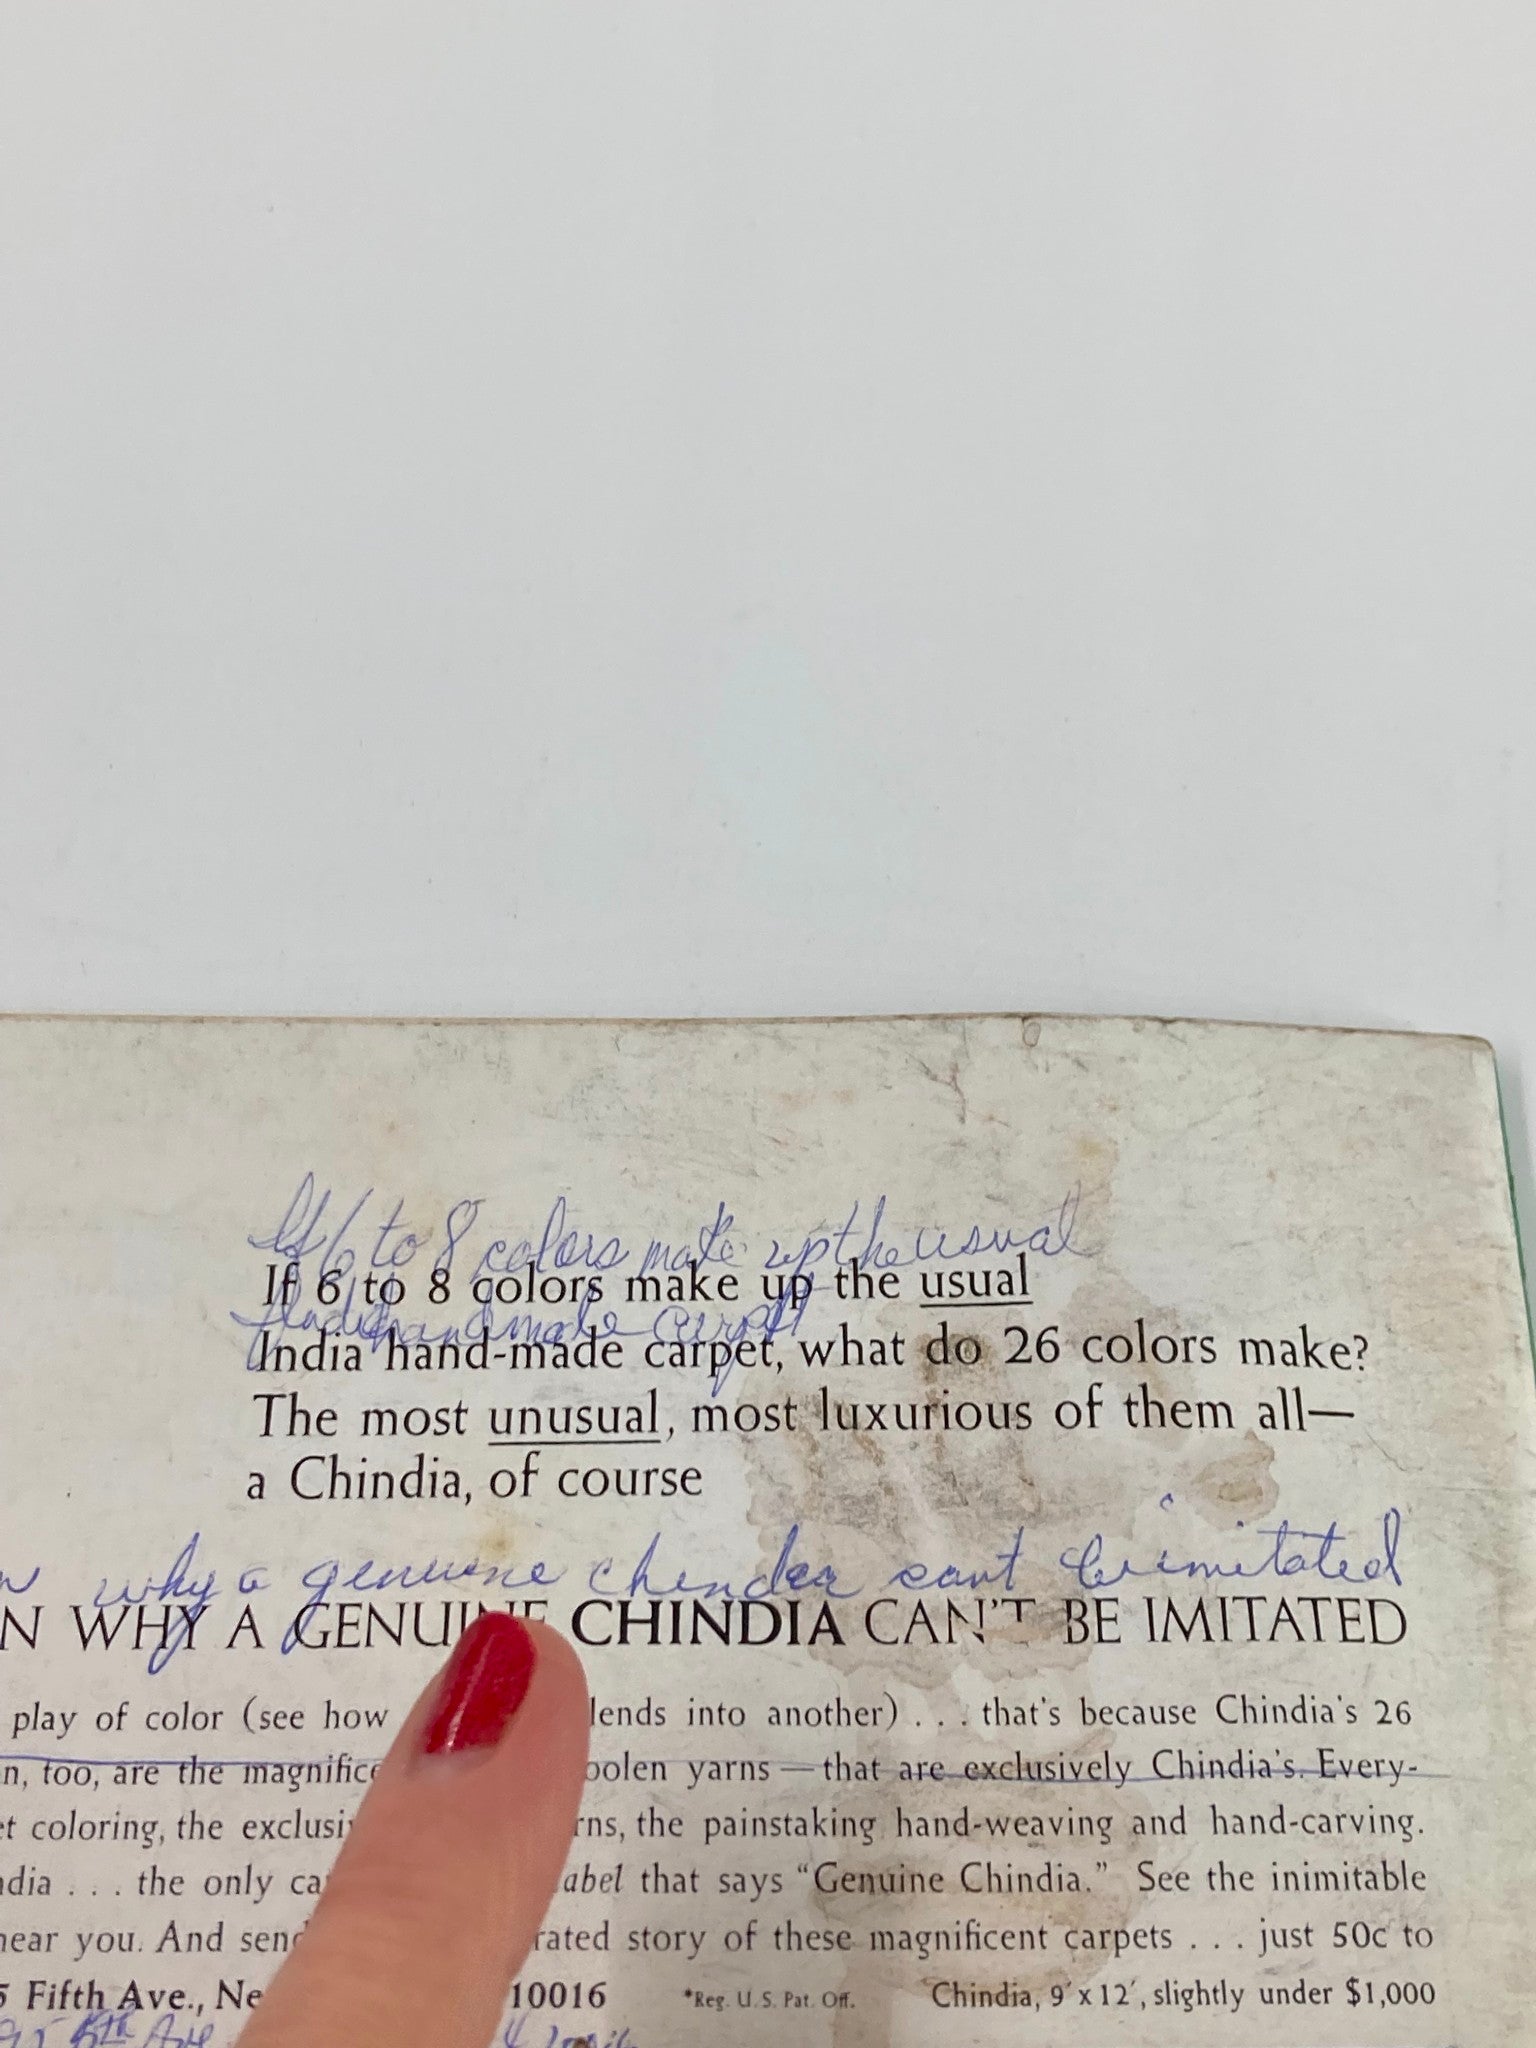 If 6 to 8 colors make up the usual
If 6 to 8 colors make up the usual
India handmade carpet
India hand-made carpet, what do 26 colors make?
The most unusual, most luxurious of them all—
a Chindia, of course
why a genuine chindia cant be imitated
N WHY A GENUINE CHINDIA CAN'T BE IMITATED
play of color (see how lends into another) . . . that's because Chindia's 26
n, too, are the magnific oolen yarns — that are exclusively Chindia's. Every-
et coloring, the exclusi rns, the painstaking hand-weaving and hand-carving.
ndia . . . the only ca label that says “Genuine Chindia.” See the inimitable
near you. And send rated story of these magnificent carpets . . . just 50c to
5 Fifth Ave., Ne 10016 *Reg. U.S. Pat. Off. Chindia, 9′ x 12′, slightly under $1,000
95 5th Ave